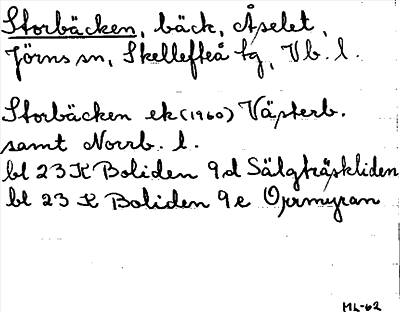 Storbäcken, bäck, Åselet,
Jörns sn, Skellefteå tg, Vb. l.
Storbäcken ek (1960) Västerb.
samt Norrb. l.
bl 23 K Boliden 9d Sälgträskliden
bl 23 K Boliden 9e Orrmyran
ML-62